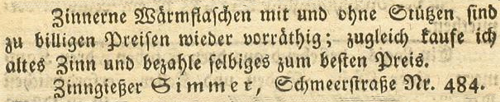 Zinnerne Wärmflaschen mit und ohne Stützen sind
zu billigen Preisen wieder vorräthig; zugleich kaufe ich
altes Zinn und bezahle selbiges zum besten Preis.
Zinngießer Simmer, Schmeerstraße Nr. 484.